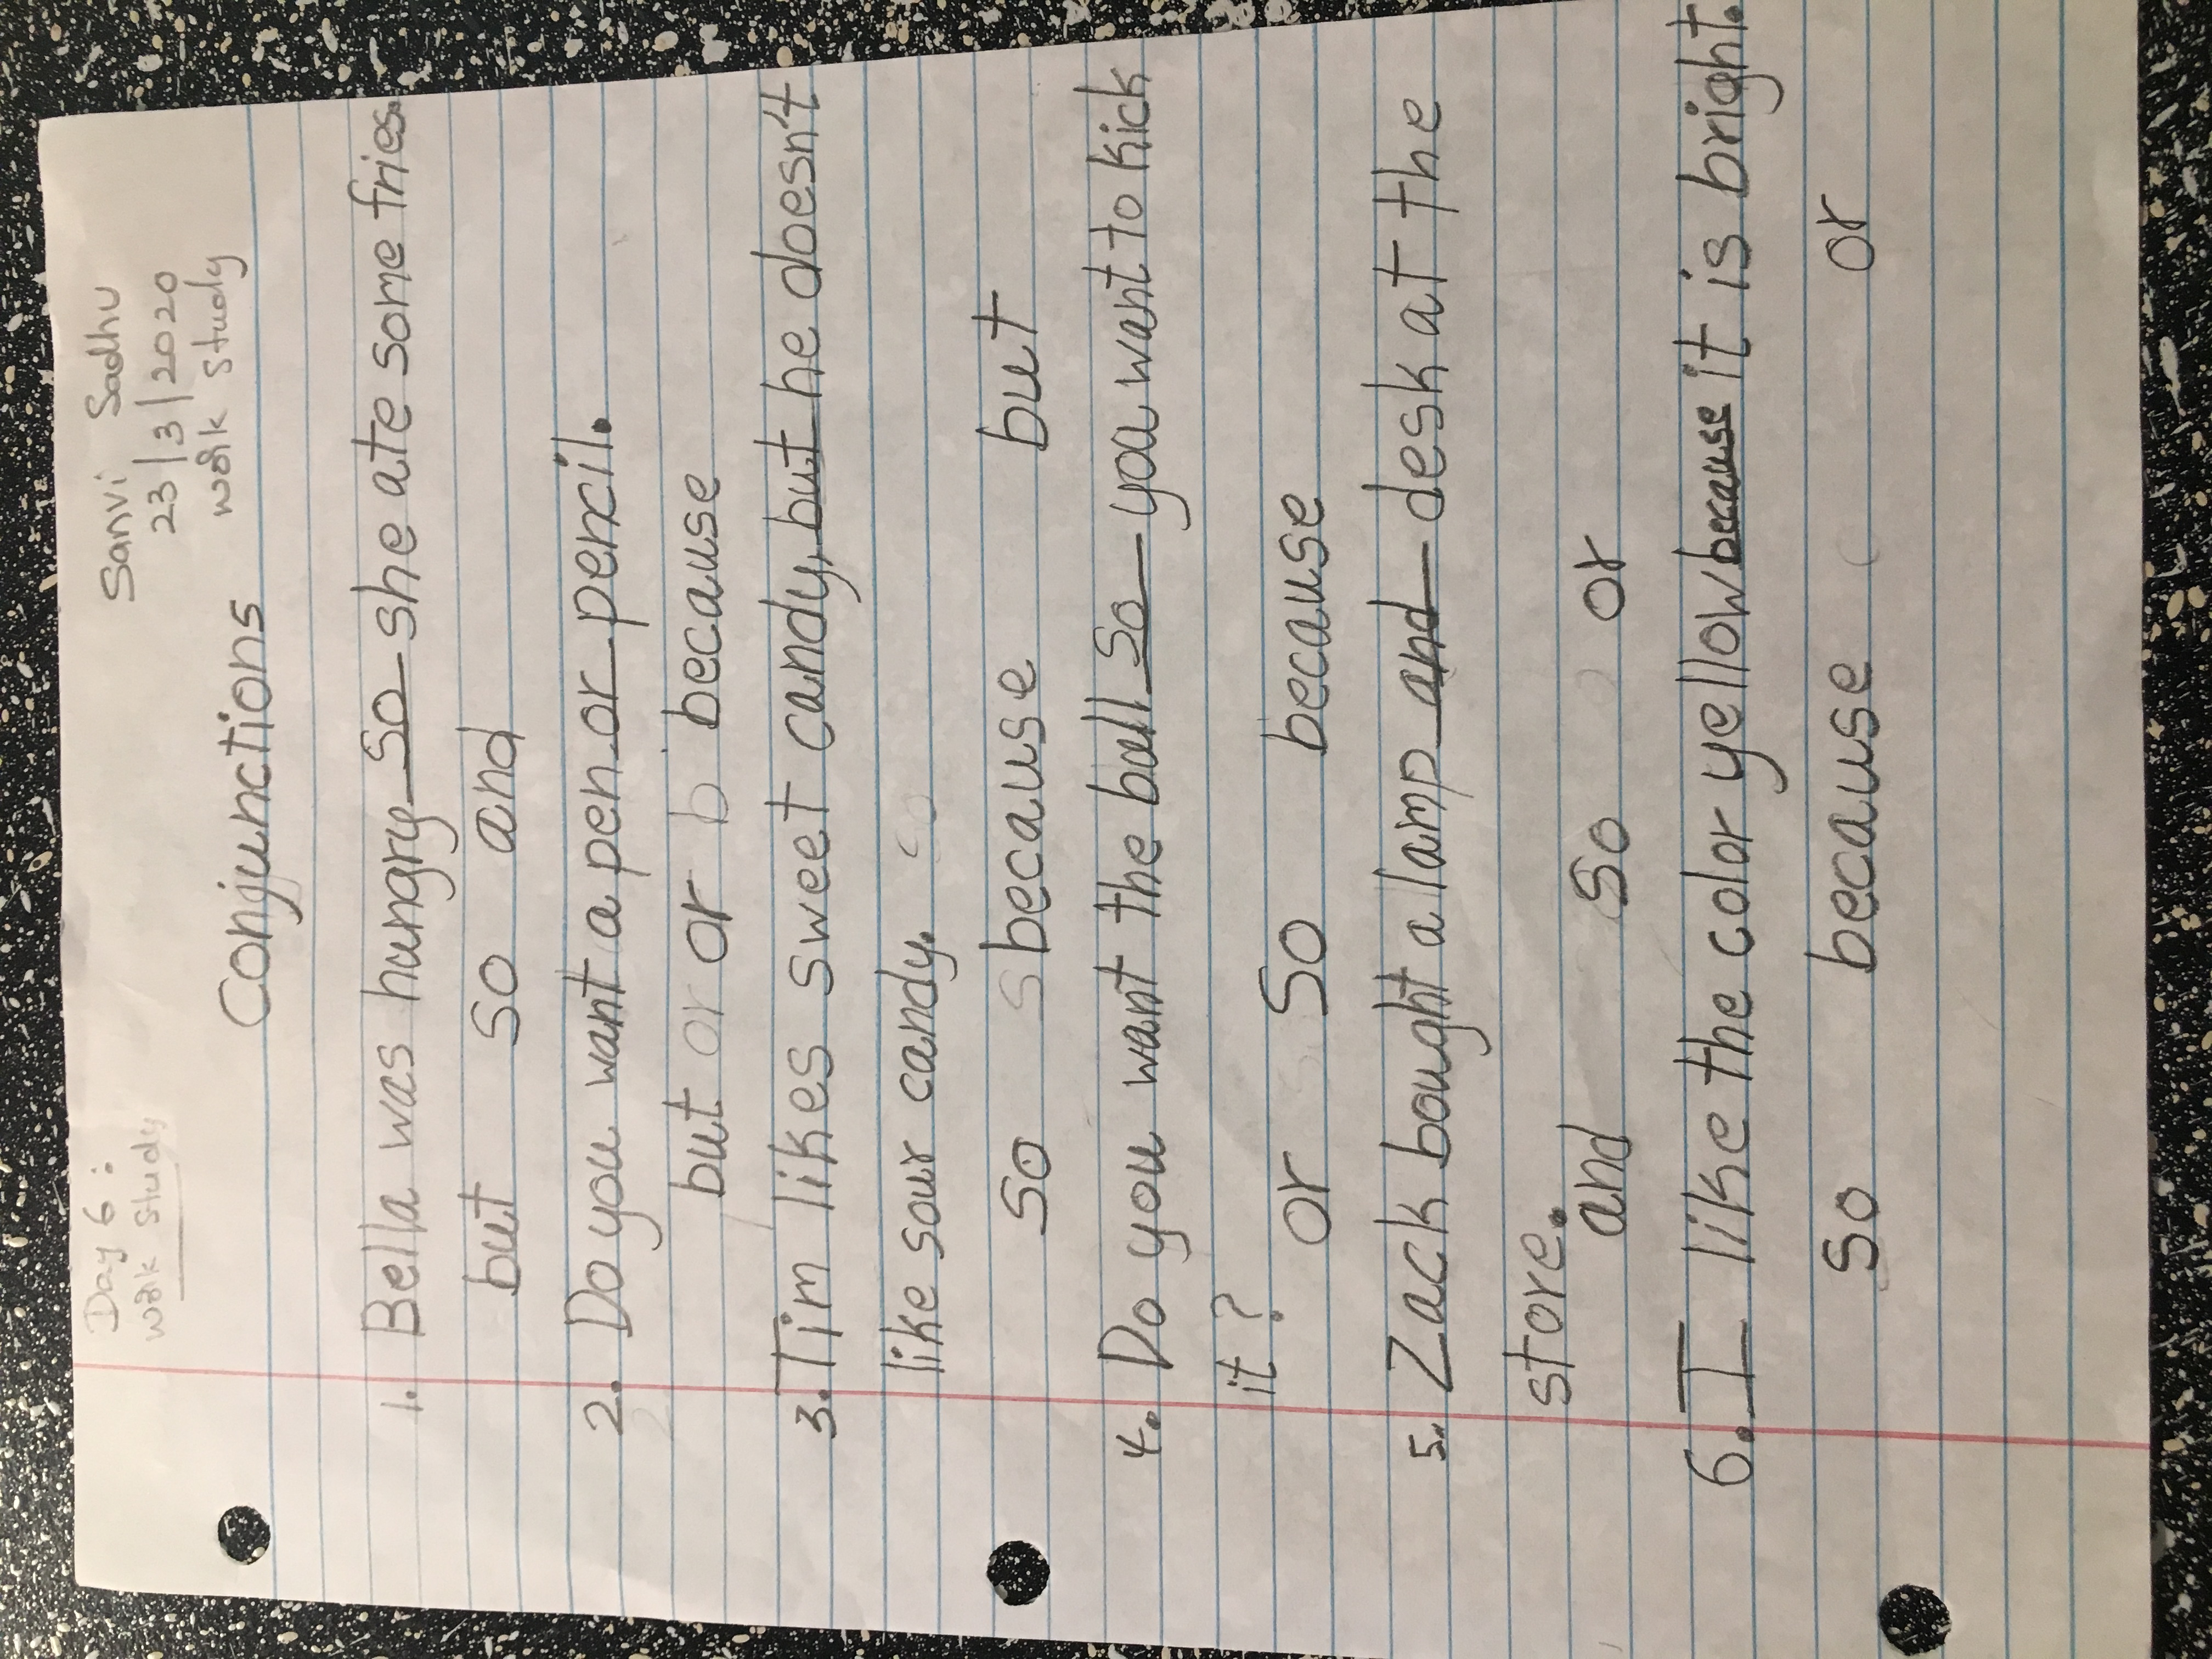 Day 6 :
Work Study
Sanvi Sadhu
23/3/2020
Work Study
Conjunctions
1. Bella was hungry so she ate some fries.
but so and
2. Do you want a pen or pencil.
but or or b because
3. Tim likes sweet candy, but he doesn't
like sour candy. so
so s because but
4. Do you want the ball so you want to kick
it ?
or So because
5. Zack bought a lamp and desk at the
store.
and so or
6. I like the color yellow because it is bright.
so because or